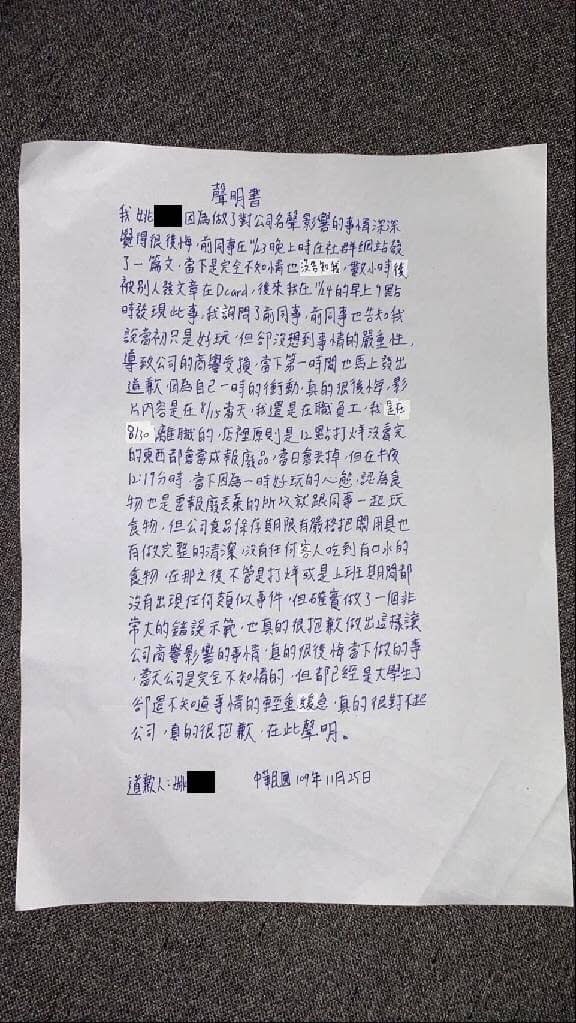 聲明書
我姚 因為做了對公司名聲影響的事情深深
覺得很後悔,前同事在11/23晚上時在社群網站發
了一篇文,當下是完全不知情也沒告知我,數小時後
被別人發文章在Dcard,後來我在11/24的早上9點
時發現此事,我詢問了前同事,前同事也告知我
說當初只是好玩,但卻沒想到事情的嚴重性,
導致公司的商譽受損,當下第一時間也馬上發出
道歉,因為自己一時的衝動,真的很後悔,影
片內容是在8/15當天,我還是在職員工,我是在
8/30離職的,店裡原則是12點打烊沒賣完
的東西都會當成報廢品,當日會丟掉,但在午夜
12:19分時,當下因為一時好玩的心態,認為食
物也是要報廢丟棄的所以就跟同事一起玩
食物,但公司食品保存期限有嚴格把關用具也
有做完整的清潔,沒有任何客人吃到有口水的
食物,在那之後不管是打烊或是上班期間都
沒有出現任何類似事件,但確實做了一個非
常大的錯誤示範,也真的很抱歉做出這樣讓
公司商譽影響的事情,真的很後悔當下做的事
,當天公司是完全不知情的,但都已經是大學生了
卻還不知道事情的輕重緩急,真的很對不起
公司,真的很抱歉,在此聲明。
道歉人:姚 中華民國109年11月25日